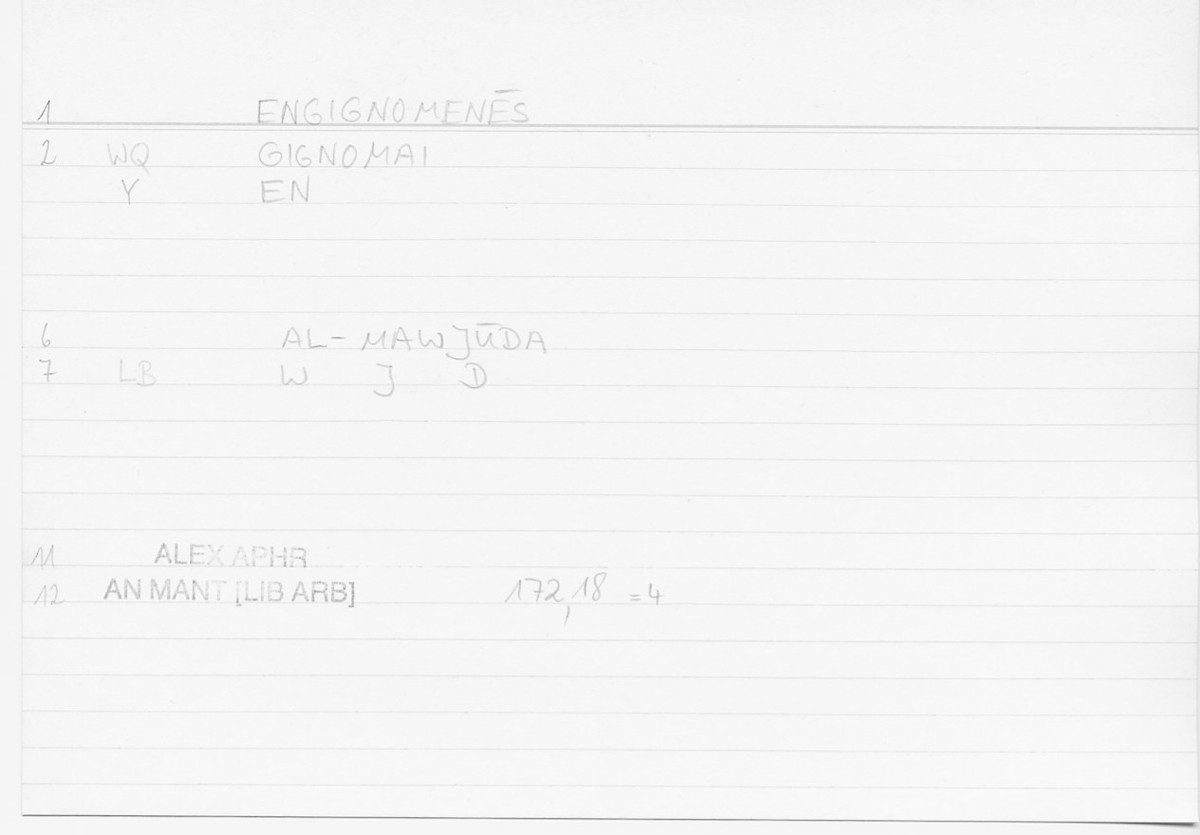 1 ENGIGNOMENĒS
2 WQ GIGNOMAI
Y EN
6 AL-MAWJŪDA
7 LB W J D
11 ALEX APHR
12 AN MANT [LIB ARB] 172,18 =4